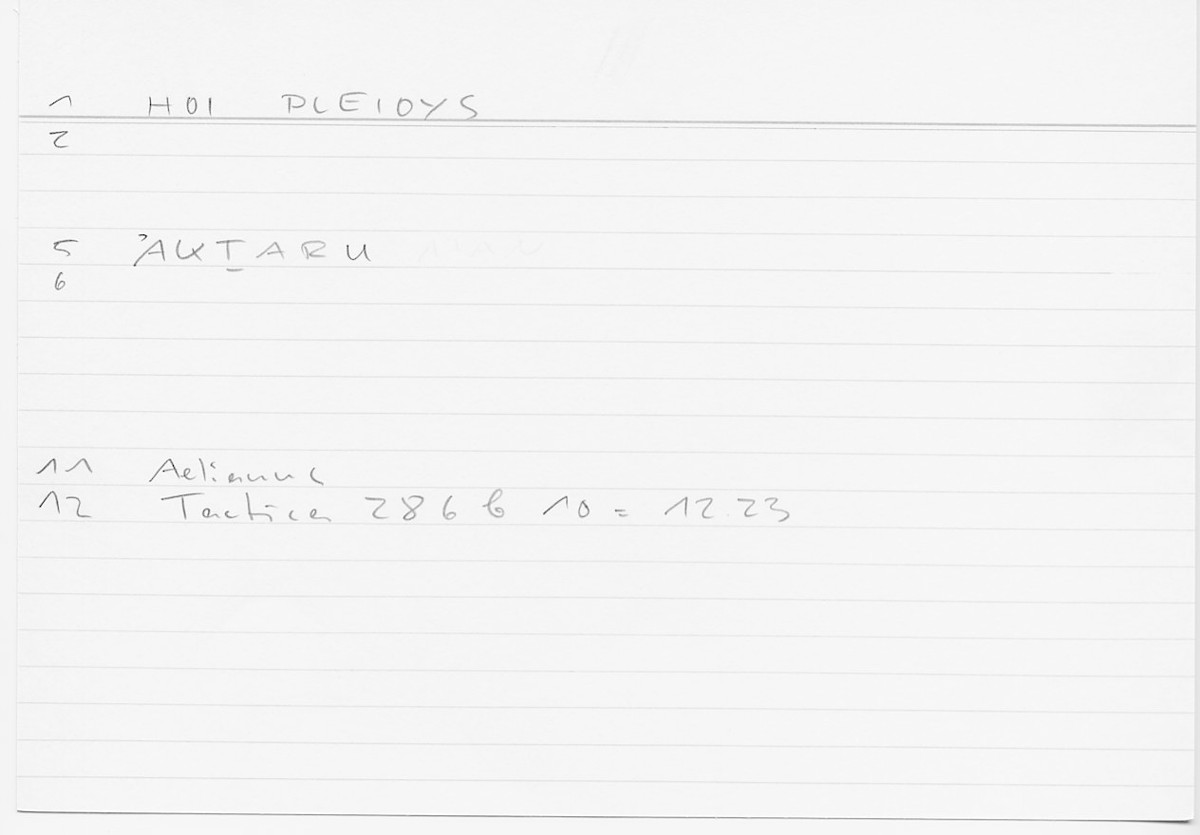 1 HOI PLEIOYS
2
5 ʾAKṮARU
6
11 Aelianus
12 Tactica 286 b 10 = 12.23